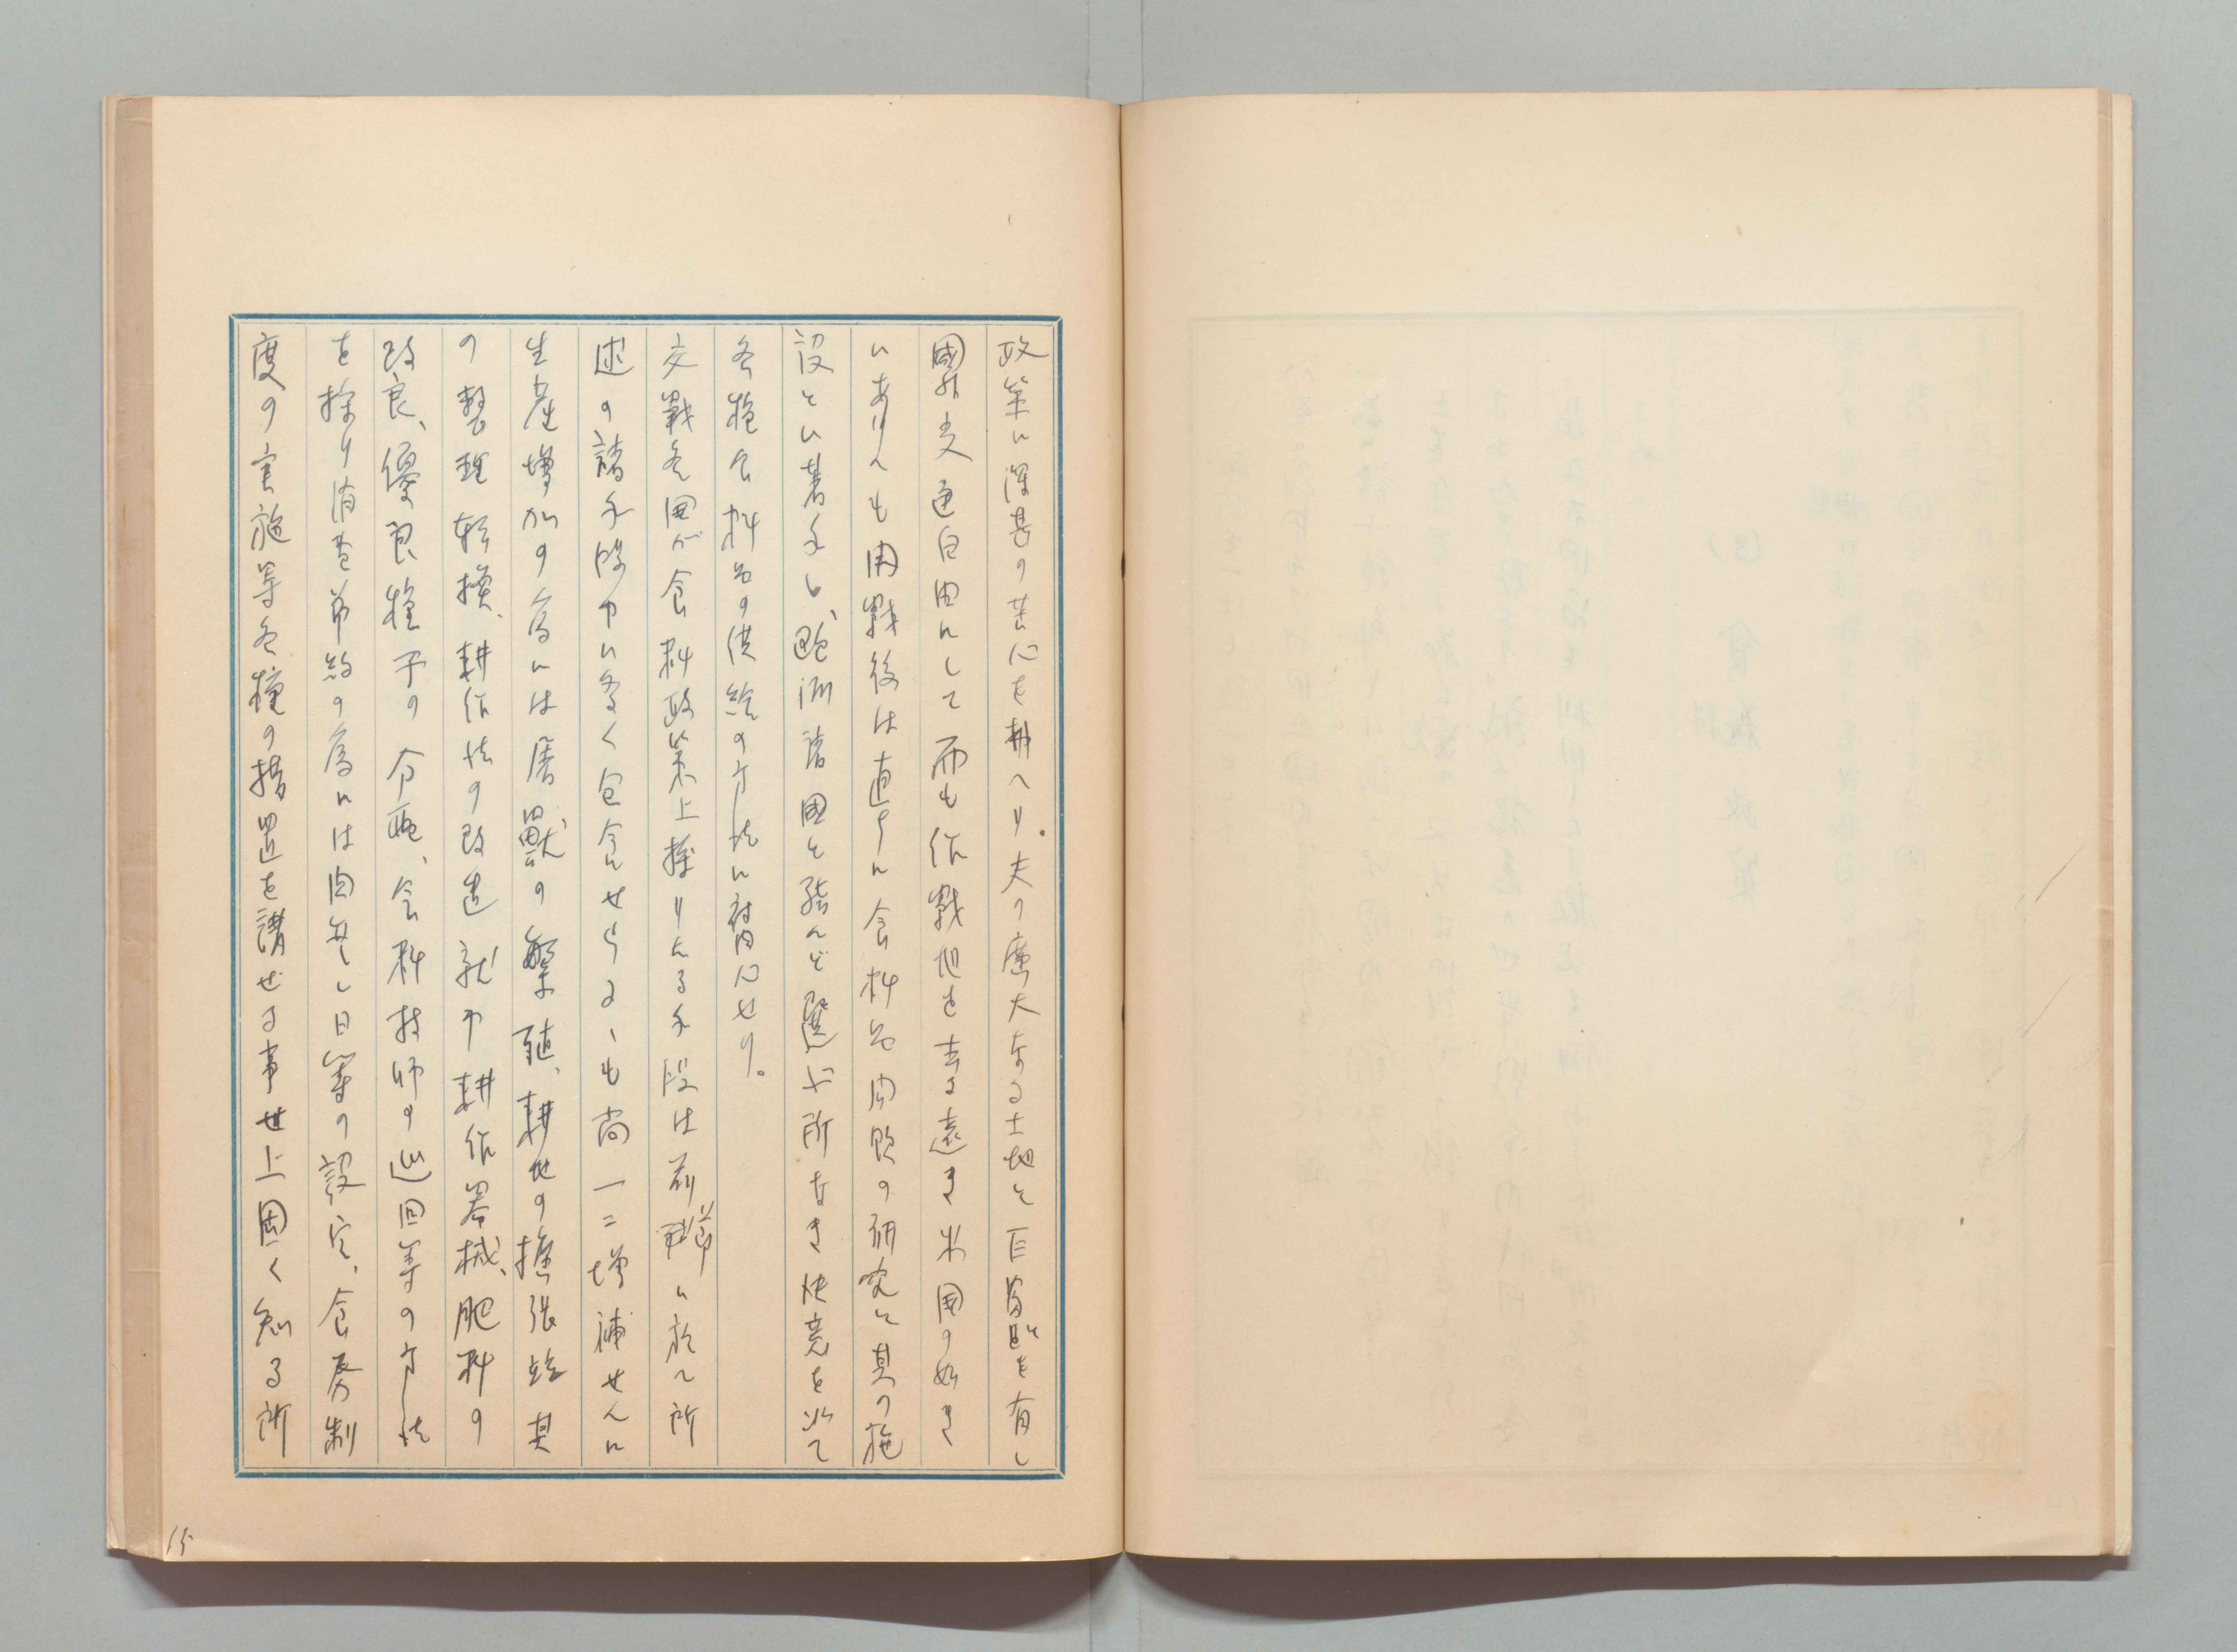 政策に深甚の苦心を拂へり。夫の廣大なる土地と巨萬の財を有し
國外交通自由にして而も作戰地を去る遠き米国の如き
にありても開戰後は直ちに食料品問題の研究と其の施
設とに着手し、歐洲諸國と殆んど選ぶ所なき決意を以て
各種食料品の供給の方法に腐心せり。
交戰各国が食料政策上採りたる手段は前節に於て所
述の諸手段中に多く包含せらるゝも尚一二増補せんに
生産増加の為には屠獣の繁殖、耕地の擴張竝其
の整理轉換、耕作法の改造就中耕作器械、肥料の
改良、優良種子の分配、食料技師の巡回等の方法
を採り消費節約の為には肉無し日等の設定、食券制
度の実施等各種の措置を講ぜる事世上固く知る所
15